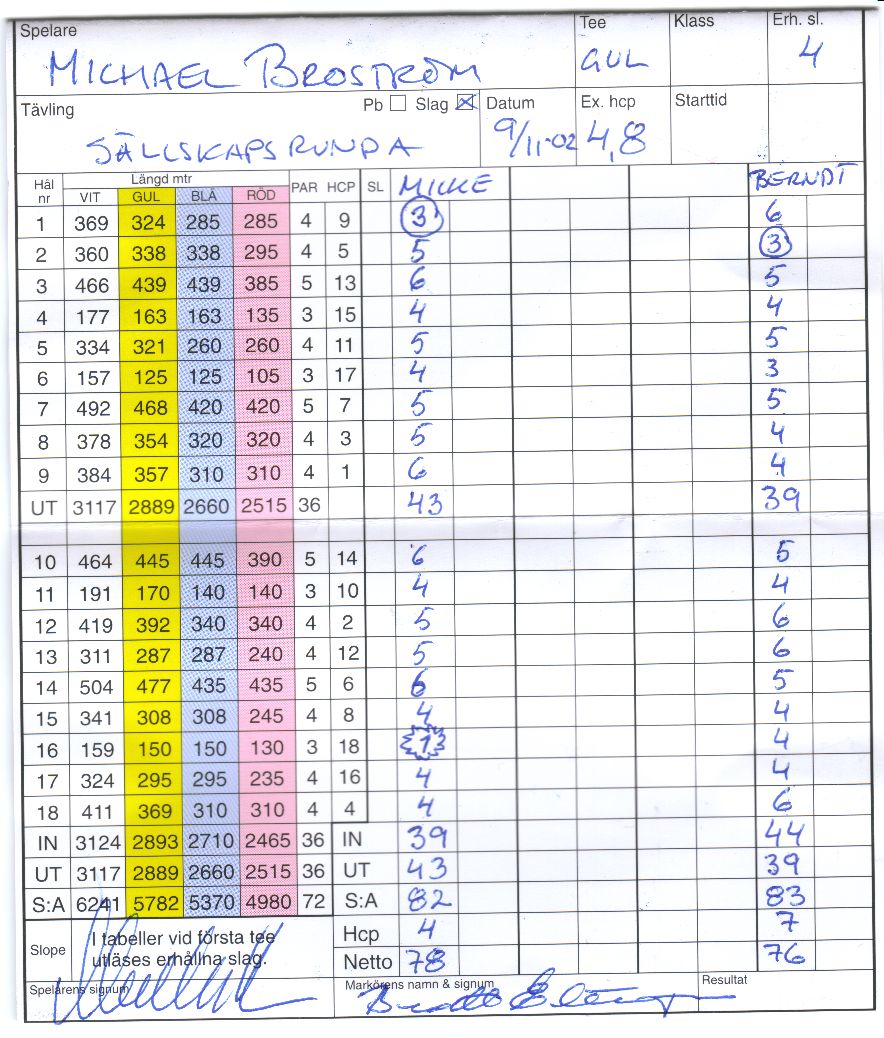 Spelare Tee Klass Erh. sl.
MICHAEL BROSTRÖM GUL 4
Tävling Pb Slag Datum Ex. hcp Starttid
SÄLLSKAPSRUNDA 9/11-02 4,8
Hål nr Längd mtr PAR HCP SL MICKE BERNDT
VIT GUL BLÅ RÖD
1 369 324 285 285 4 9 3 6
2 360 338 338 295 4 5 5 3
3 466 439 439 385 5 13 6 5
4 177 163 163 135 3 15 4 4
5 334 321 260 260 4 11 5 5
6 157 125 125 105 3 17 4 3
7 492 468 420 420 5 7 5 5
8 378 354 320 320 4 3 5 4
9 384 357 310 310 4 1 6 4
UT 3117 2889 2660 2515 36 43 39
10 464 445 445 390 5 14 6 5
11 191 170 140 140 3 10 4 4
12 419 392 340 340 4 2 5 6
13 311 287 287 240 4 12 5 6
14 504 477 435 435 5 6 6 5
15 341 308 308 245 4 8 4 4
16 159 150 150 130 3 18 1 4
17 324 295 295 235 4 16 4 4
18 411 369 310 310 4 4 4 6
IN 3124 2893 2710 2465 36 IN 39 44
UT 3117 2889 2660 2515 36 UT 43 39
S:A 6241 5782 5370 4980 72 S:A 82 83
Slope I tabeller vid första tee Hcp 4 7
utläses erhållna slag. Netto 78 76
Spelarens signum Markörens namn & signum Resultat